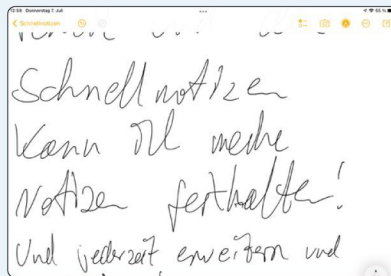 12:58 Donnerstag 7. Juli
55 %
Schnellnotizen
Schnellnotizen
Kann ich meine
Notizen festhalten!
Und jederzeit erweitern und